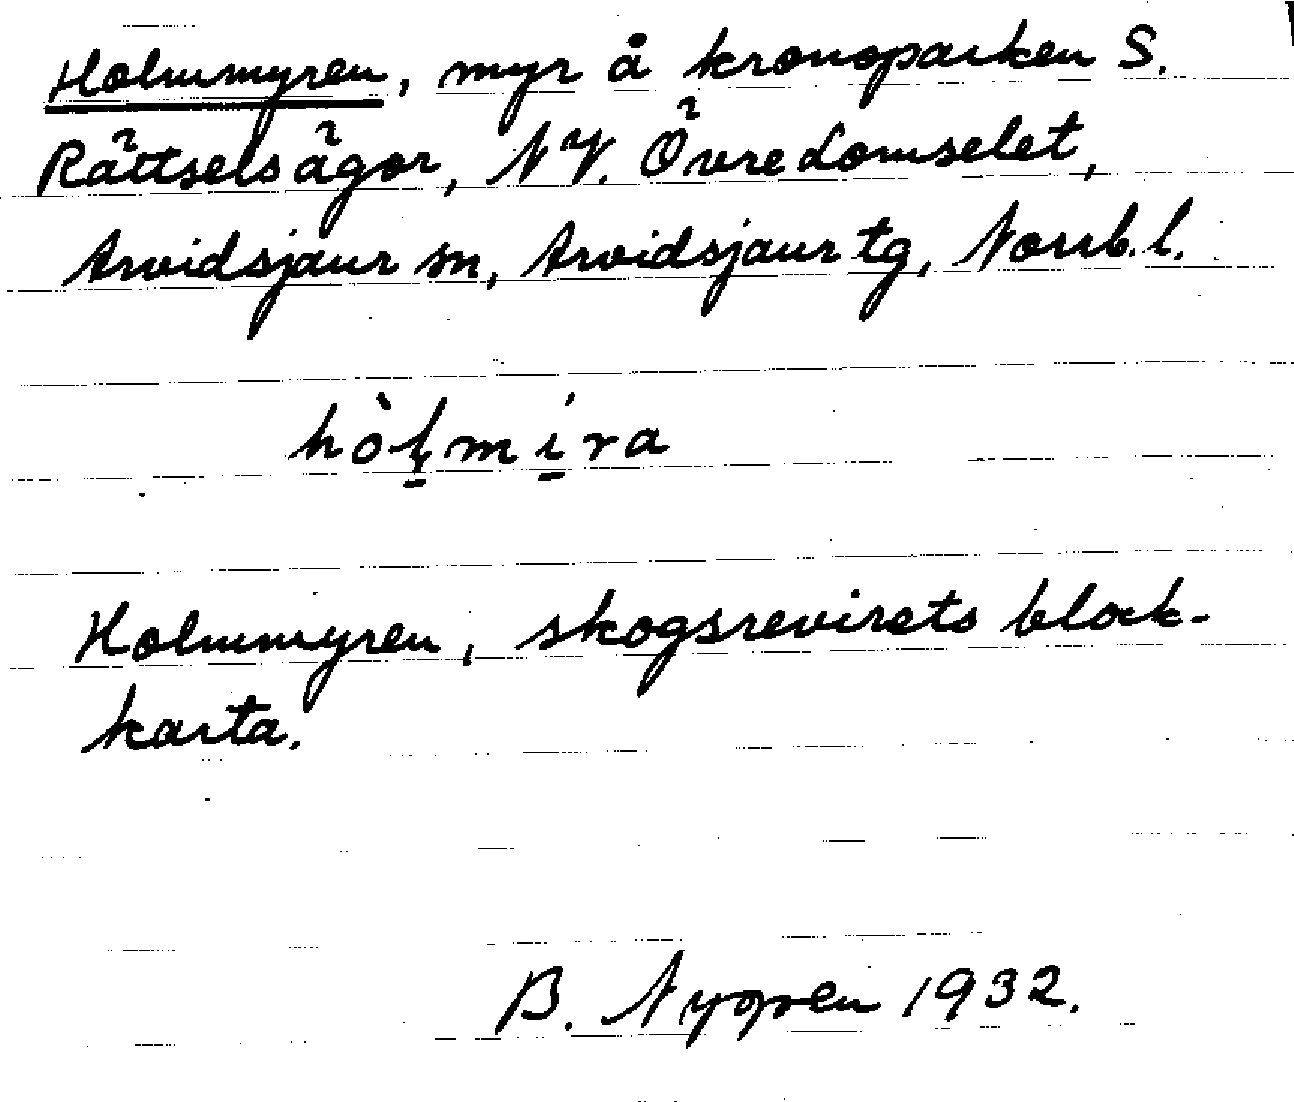 Holmmyren, myr å kronoparken S.
Rättsels ägor, NV. Övre Lomselet,
Arvidsjaur sn, Arvidsjaur tg, Norrb. l.
hòl̠mí̠ra
Holmmyren, skogsrevirets block-
karta.
B. Nygren 1932.